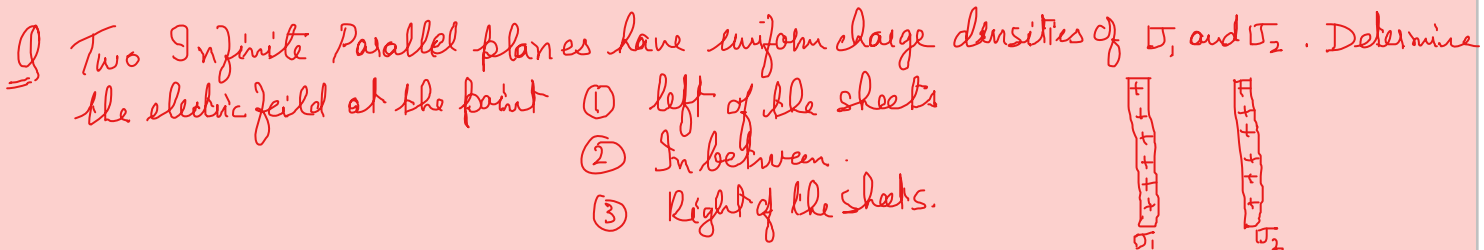 Q Two Infinite Parallel planes have uniform charge densities of σ₁ and σ₂. Determine
the electric feild at the point ① left of the sheets
② In between.
③ Right of the sheets.
+ +
+ +
+ +
+ +
+ +
+ +
σ₁ σ₂